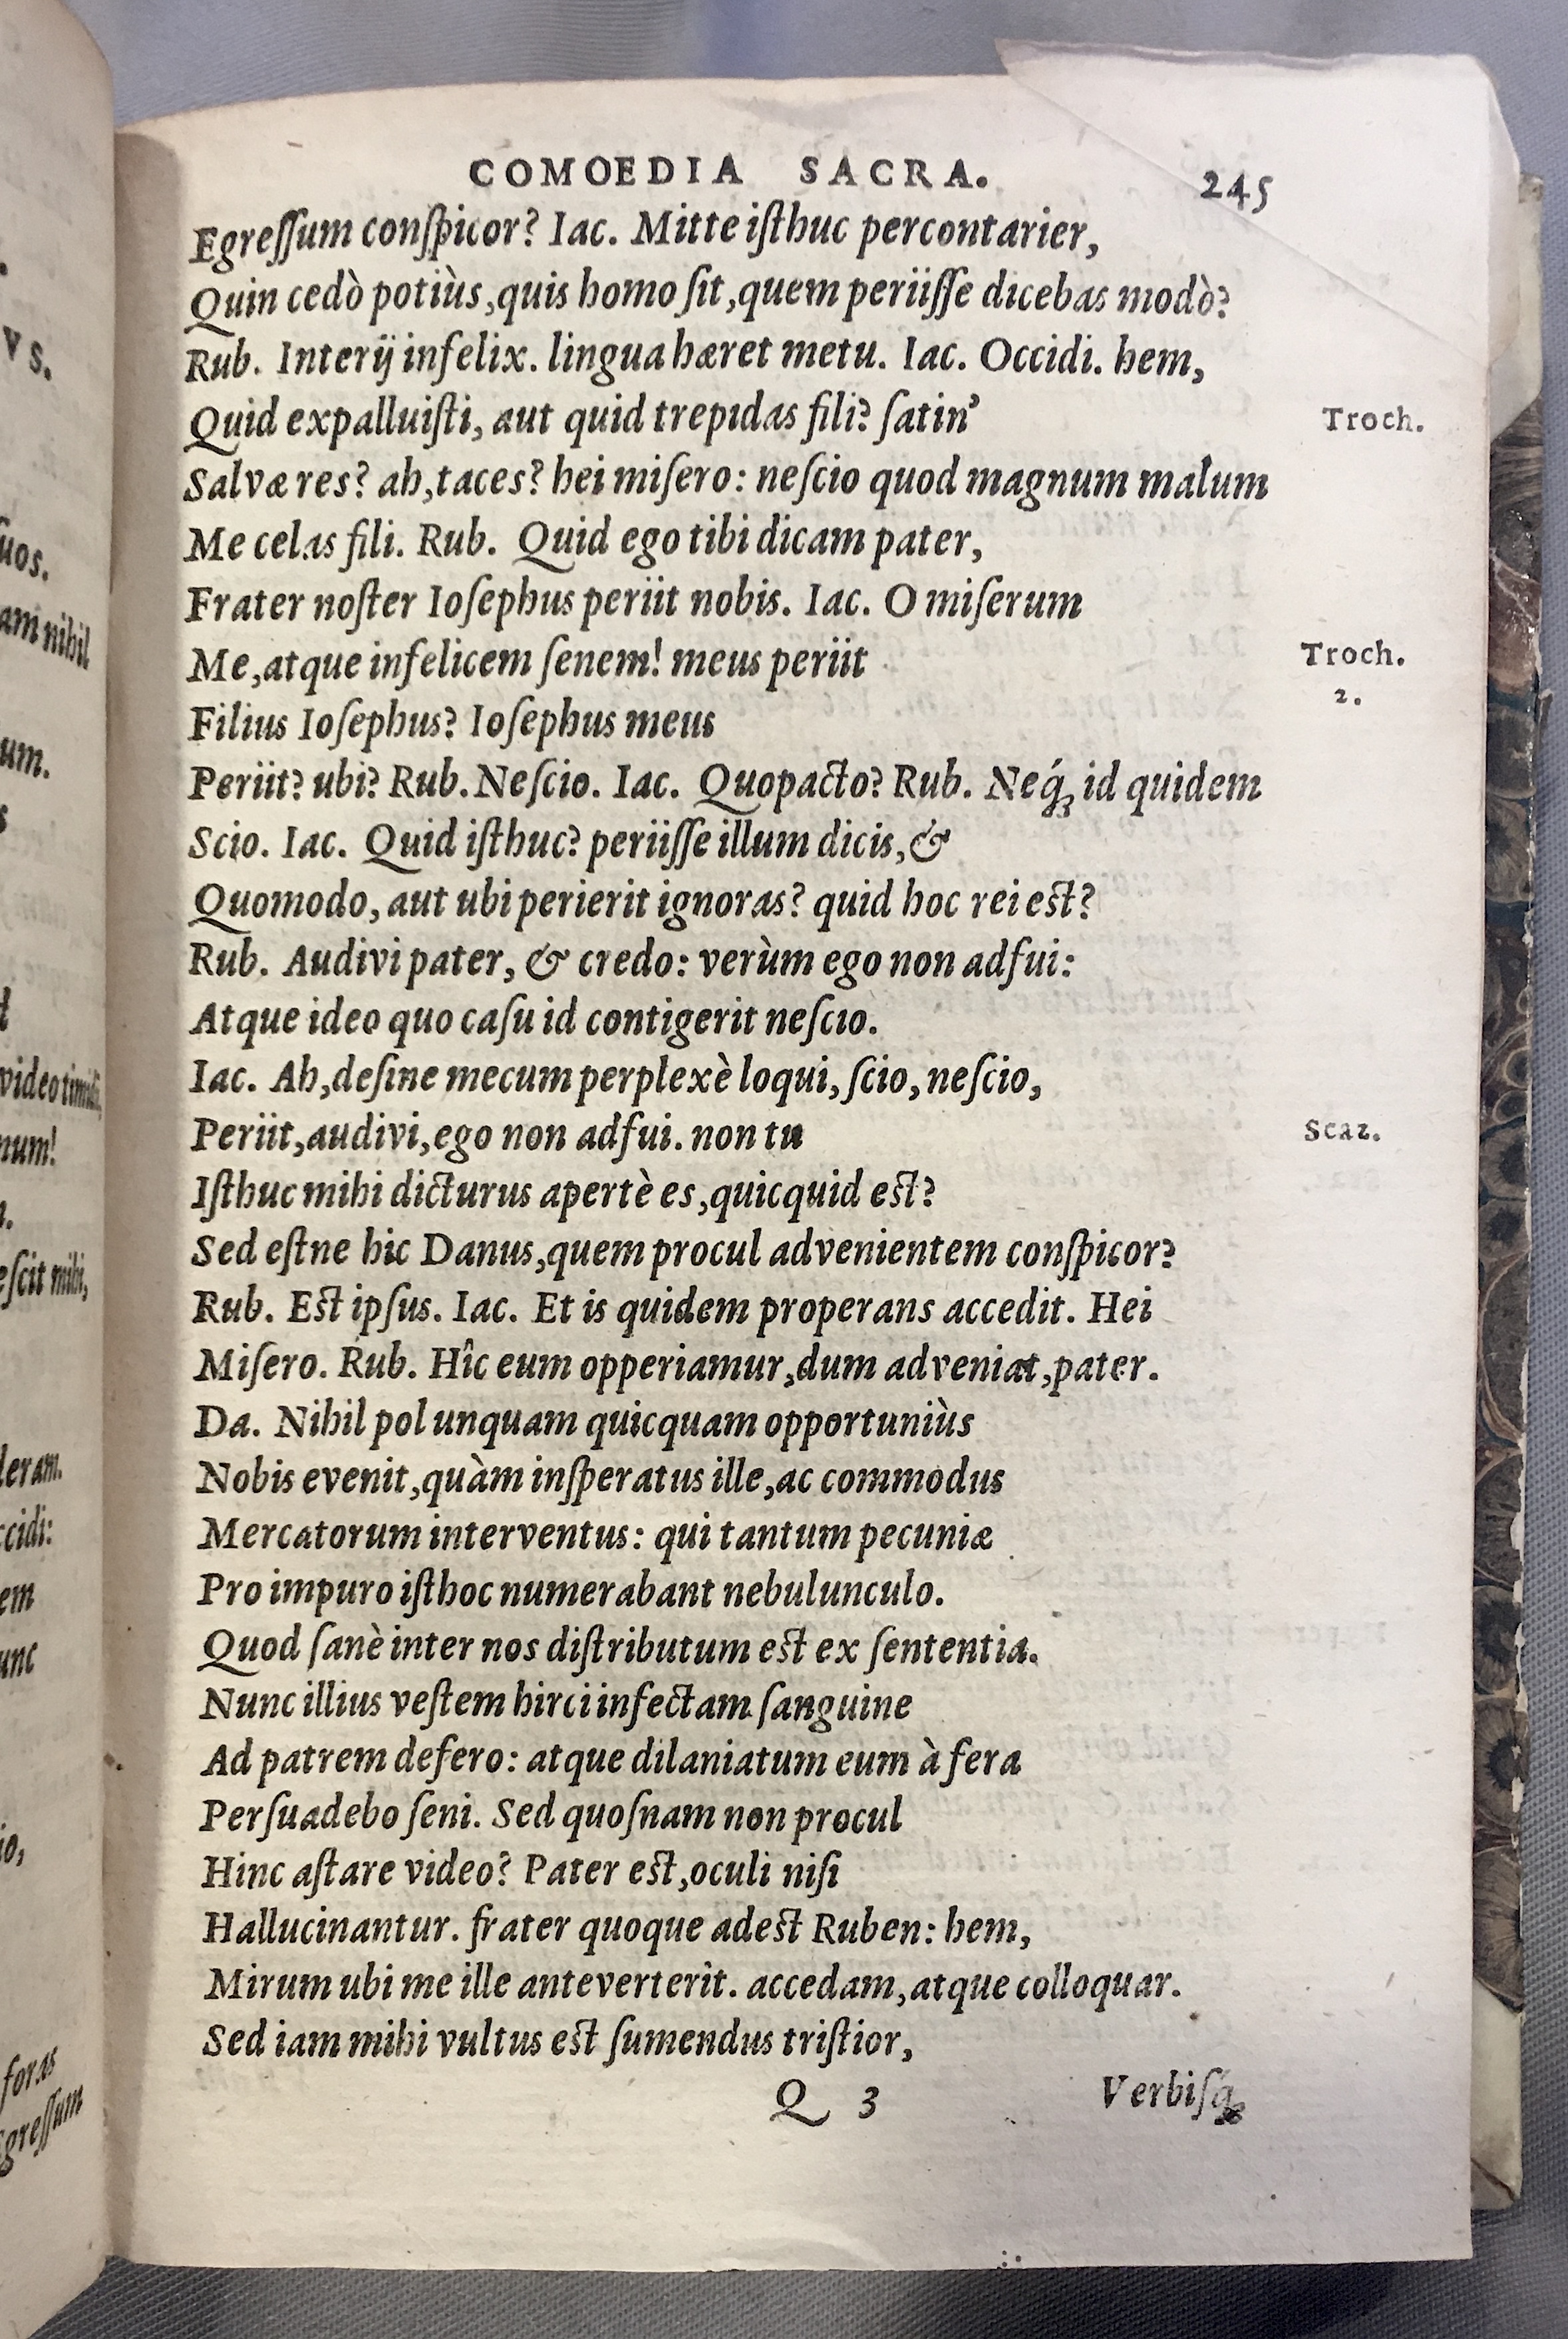 COMOEDIA SACRA. 245
Egreſſum conſpicor? Iac. Mitte iſthuc percontarier,
Quin cedò potiùs, quis homo ſit, quem periiſſe dicebas modò?
Rub. Interij infelix. lingua hæret metu. Iac. Occidi. hem,
Quid expalluiſti, aut quid trepidas fili? ſatin' Troch.
Salvæ res? ah, taces? hei miſero: neſcio quod magnum malum
Me celas fili. Rub. Quid ego tibi dicam pater,
Frater noſter Ioſephus periit nobis. Iac. O miſerum
Me, atque infelicem ſenem! meus periit Troch.
2.
Filius Ioſephus? Ioſephus meus
Periit? ubi? Rub. Neſcio. Iac. Quo pacto? Rub. Neq́; id quidem
Scio. Iac. Quid iſthuc? periiſſe illum dicis, &
Quomodo, aut ubi perierit ignoras? quid hoc rei eſt?
Rub. Audivi pater, & credo: verùm ego non adfui:
Atque ideo quo caſu id contigerit neſcio.
Iac. Ah, deſine mecum perplexè loqui, ſcio, neſcio,
Periit, audivi, ego non adfui. non tu Scaz.
Iſthuc mihi dicturus apertè es, quicquid eſt?
Sed eſtne hic Danus, quem procul advenientem conſpicor?
Rub. Eſt ipſus. Iac. Et is quidem properans accedit. Hei
Miſero. Rub. Hîc eum opperiamur, dum adveniat, pater.
Da. Nihil pol unquam quicquam opportuniùs
Nobis evenit, quàm inſperatus ille, ac commodus
Mercatorum interventus: qui tantum pecuniæ
Pro impuro iſthoc numerabant nebulunculo.
Quod ſanè inter nos diſtributum eſt ex ſententia.
Nunc illius veſtem hirci infectam ſanguine
Ad patrem defero: atque dilaniatum eum à fera
Perſuadebo ſeni. Sed quoſnam non procul
Hinc aſtare video? Pater eſt, oculi niſi
Hallucinantur. frater quoque adeſt Ruben: hem,
Mirum ubi me ille anteverterit. accedam, atque colloquar.
Sed iam mihi vultus eſt ſumendus triſtior,
Q 3 Verbiſq;